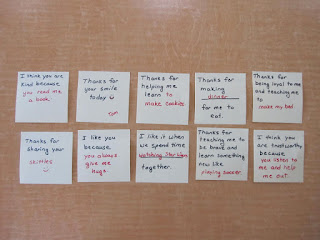 I think you are
kind because
you read me
a book.
Thanks for
your smile
today
Tom
Thanks for
helping me
learn to
make cookies
Thanks for
making
dinner
for me to
eat.
Thanks for
being loyal to me
and teaching me
to
make my bed
Thanks for
sharing your
I like you
because
you always
give me
hugs.
I like it when
we spend time
watching
together.
Thanks for
teaching me to
be brave and
learn something
new like
playing soccer
I think you
are trustworthy
because
you listen to
me and help
me out.